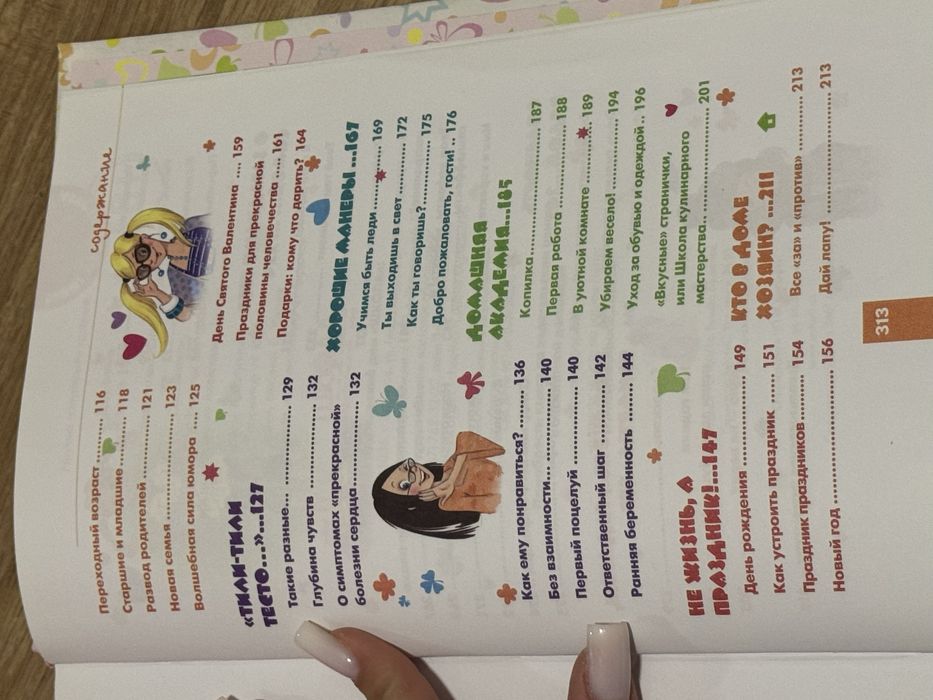 содержание
Переходный возраст ...... 116
Старшие и младшие ....... 118
Развод родителей ......... 121
Новая семья ................ 123
Волшебная сила юмора .... 125
«ТИЛИ-ТИЛИ
ТЕСТО...»...127
Такие разные... ............ 129
Глубина чувств ............. 132
О симптомах «прекрасной»
болезни сердца ............ 132
Как ему понравиться? .... 136
Без взаимности............. 140
Первый поцелуй ........... 140
Ответственный шаг ....... 142
Ранняя беременность ..... 144
НЕ ЖИЗНЬ, А
ПРАЗДНИК!...147
День рождения ............. 149
Как устроить праздник ... 151
Праздник праздников...... 154
Новый год .................. 156
День Святого Валентина .... 159
Праздники для прекрасной
половины человечества ..... 161
Подарки: кому что дарить? 164
ХОРОШИЕ МАНЕРЫ ...167
Учимся быть леди .......... 169
Ты выходишь в свет ........ 172
Как ты говоришь?........... 175
Добро пожаловать, гости! .. 176
ДОМАШНЯЯ
АКАДЕМИЯ...185
Копилка...................... 187
Первая работа .............. 188
В уютной комнате .......... 189
Убираем весело! ............ 194
Уход за обувью и одеждой .. 196
«Вкусные» странички,
или Школа кулинарного
мастерства.. ................ 201
КТО В ДОМЕ
ХОЗЯИН? ...211
Все «за» и «против» ........ 213
Дай лапу! ................... 213
313